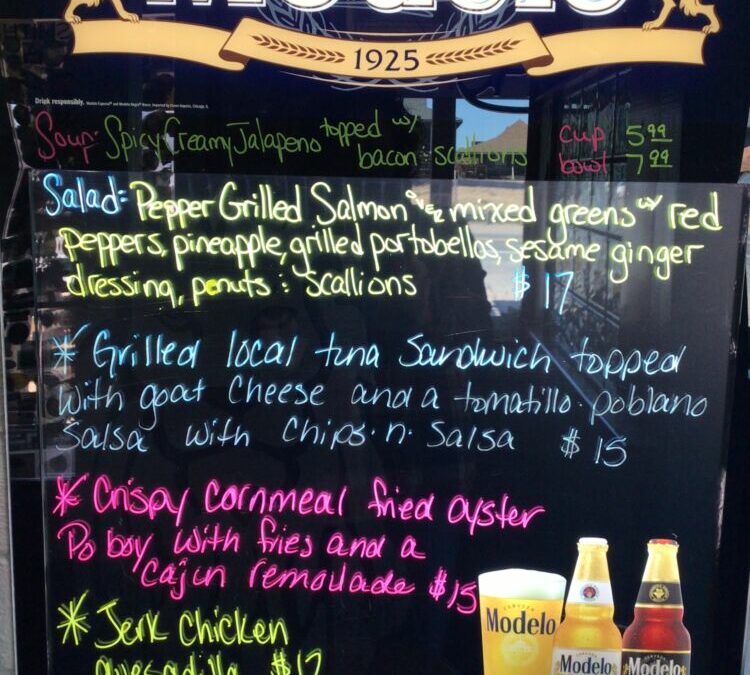 Modelo
1925
Drink responsibly.
Soup: Spicy Creamy Jalapeno topped w/ bacon scallions cup 5.99 bowl 7.99
Salad: Pepper Grilled Salmon over mixed greens w/ red
peppers, pineapple, grilled portobellos, sesame ginger
dressing, penuts & scallions $17
* Grilled local tuna Sandwich topped
with goat Cheese and a tomatillo-poblano
Salsa with Chips-n-Salsa $15
* Crispy cornmeal fried oyster
Po boy with fries and a
Cajun remoulade $15
* Jerk Chicken
quesadilla $12
Modelo
Modelo
Modelo